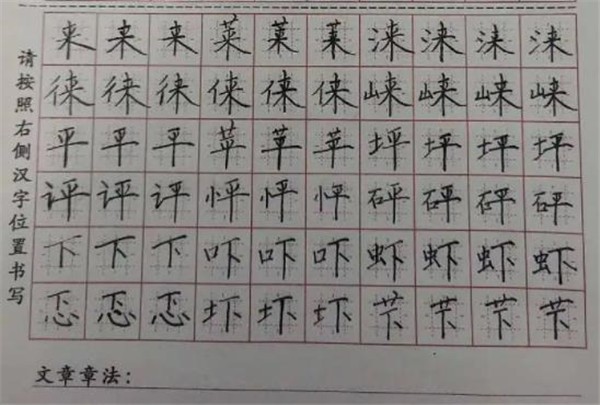 请按照右侧汉字位置书写
来来来莱莱莱涞涞涞涞
徕徕徕俫俫俫崃崃崃崃
平平平苹苹苹坪坪坪坪
评评评怦怦怦砰砰砰砰
下下下吓吓吓虾虾虾虾
忑忑忑圷圷圷芐芐芐芐
文章章法：